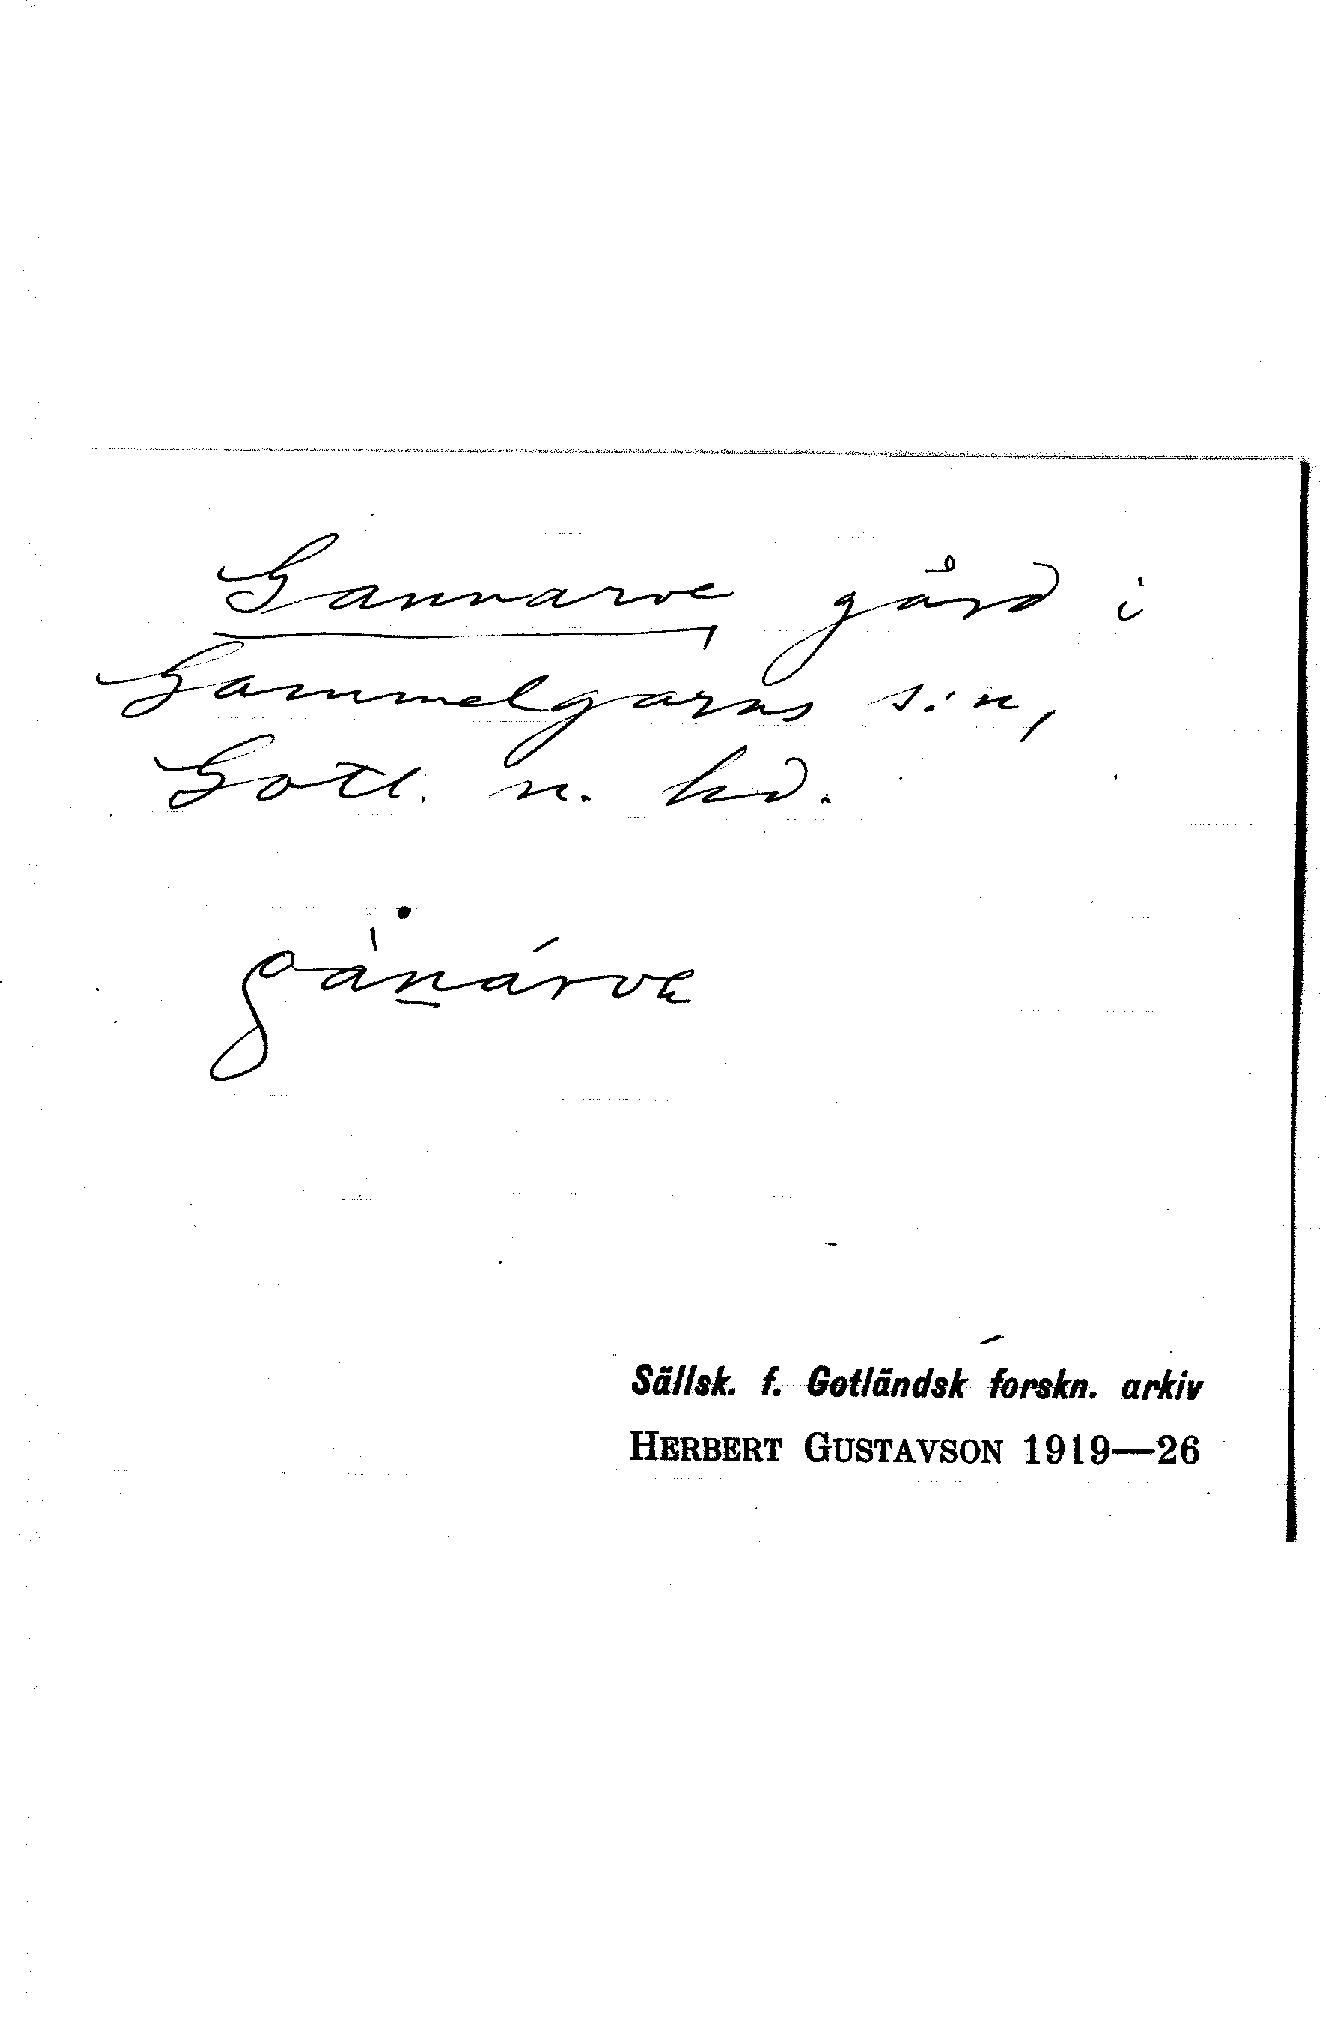 Gannarve gård i
Gammelgarns s:n,
Gotl. n. hd.
gànárvę
Sällsk. f. Gotländsk forskn. arkiv
HERBERT GUSTAVSON 1919—26